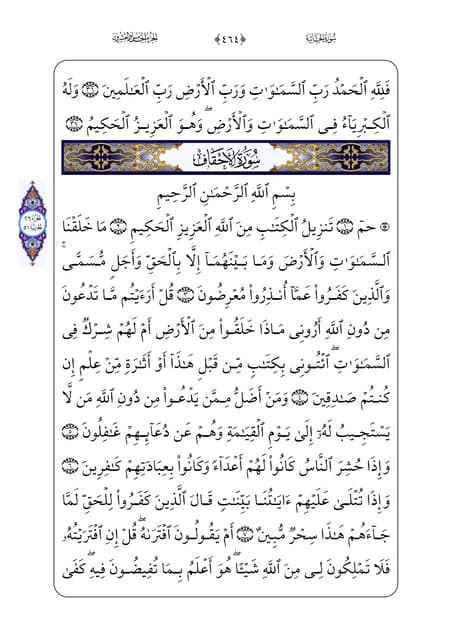 سُورَةُ الجَاثِيَة
﴿٤٦٤﴾
الجزء الخامس والعشرون
فَلِلَّهِ ٱلۡحَمۡدُ رَبِّ ٱلسَّمَٰوَٰتِ وَرَبِّ ٱلۡأَرۡضِ رَبِّ ٱلۡعَٰلَمِينَ ٣٦ وَلَهُ
ٱلۡكِبۡرِيَآءُ فِي ٱلسَّمَٰوَٰتِ وَٱلۡأَرۡضِۖ وَهُوَ ٱلۡعَزِيزُ ٱلۡحَكِيمُ ٣٧
سُورَةُ الأَحْقَافِ
بِسۡمِ ٱللَّهِ ٱلرَّحۡمَٰنِ ٱلرَّحِيمِ
حمٓ ١ تَنزِيلُ ٱلۡكِتَٰبِ مِنَ ٱللَّهِ ٱلۡعَزِيزِ ٱلۡحَكِيمِ ٢ مَا خَلَقۡنَا
ٱلسَّمَٰوَٰتِ وَٱلۡأَرۡضَ وَمَا بَيۡنَهُمَآ إِلَّا بِٱلۡحَقِّ وَأَجَلٖ مُّسَمّٗىۚ
وَٱلَّذِينَ كَفَرُواْ عَمَّآ أُنذِرُواْ مُعۡرِضُونَ ٣ قُلۡ أَرَءَيۡتُم مَّا تَدۡعُونَ
مِن دُونِ ٱللَّهِ أَرُونِي مَاذَا خَلَقُواْ مِنَ ٱلۡأَرۡضِ أَمۡ لَهُمۡ شِرۡكٞ فِي
ٱلسَّمَٰوَٰتِۖ ٱئۡتُونِي بِكِتَٰبٖ مِّن قَبۡلِ هَٰذَآ أَوۡ أَثَٰرَةٖ مِّنۡ عِلۡمٍ إِن
كُنتُمۡ صَٰدِقِينَ ٤ وَمَنۡ أَضَلُّ مِمَّن يَدۡعُواْ مِن دُونِ ٱللَّهِ مَن لَّا
يَسۡتَجِيبُ لَهُۥٓ إِلَىٰ يَوۡمِ ٱلۡقِيَٰمَةِ وَهُمۡ عَن دُعَآئِهِمۡ غَٰفِلُونَ ٥
وَإِذَا حُشِرَ ٱلنَّاسُ كَانُواْ لَهُمۡ أَعۡدَآءٗ وَكَانُواْ بِعِبَادَتِهِمۡ كَٰفِرِينَ ٦
وَإِذَا تُتۡلَىٰ عَلَيۡهِمۡ ءَايَٰتُنَا بَيِّنَٰتٖ قَالَ ٱلَّذِينَ كَفَرُواْ لِلۡحَقِّ لَمَّا
جَآءَهُمۡ هَٰذَا سِحۡرٞ مُّبِينٌ ٧ أَمۡ يَقُولُونَ ٱفۡتَرَىٰهُۖ قُلۡ إِنِ ٱفۡتَرَيۡتُهُۥ
فَلَا تَمۡلِكُونَ لِي مِنَ ٱللَّهِ شَيۡـًٔاۖ هُوَ أَعۡلَمُ بِمَا تُفِيضُونَ فِيهِۖ كَفَىٰ